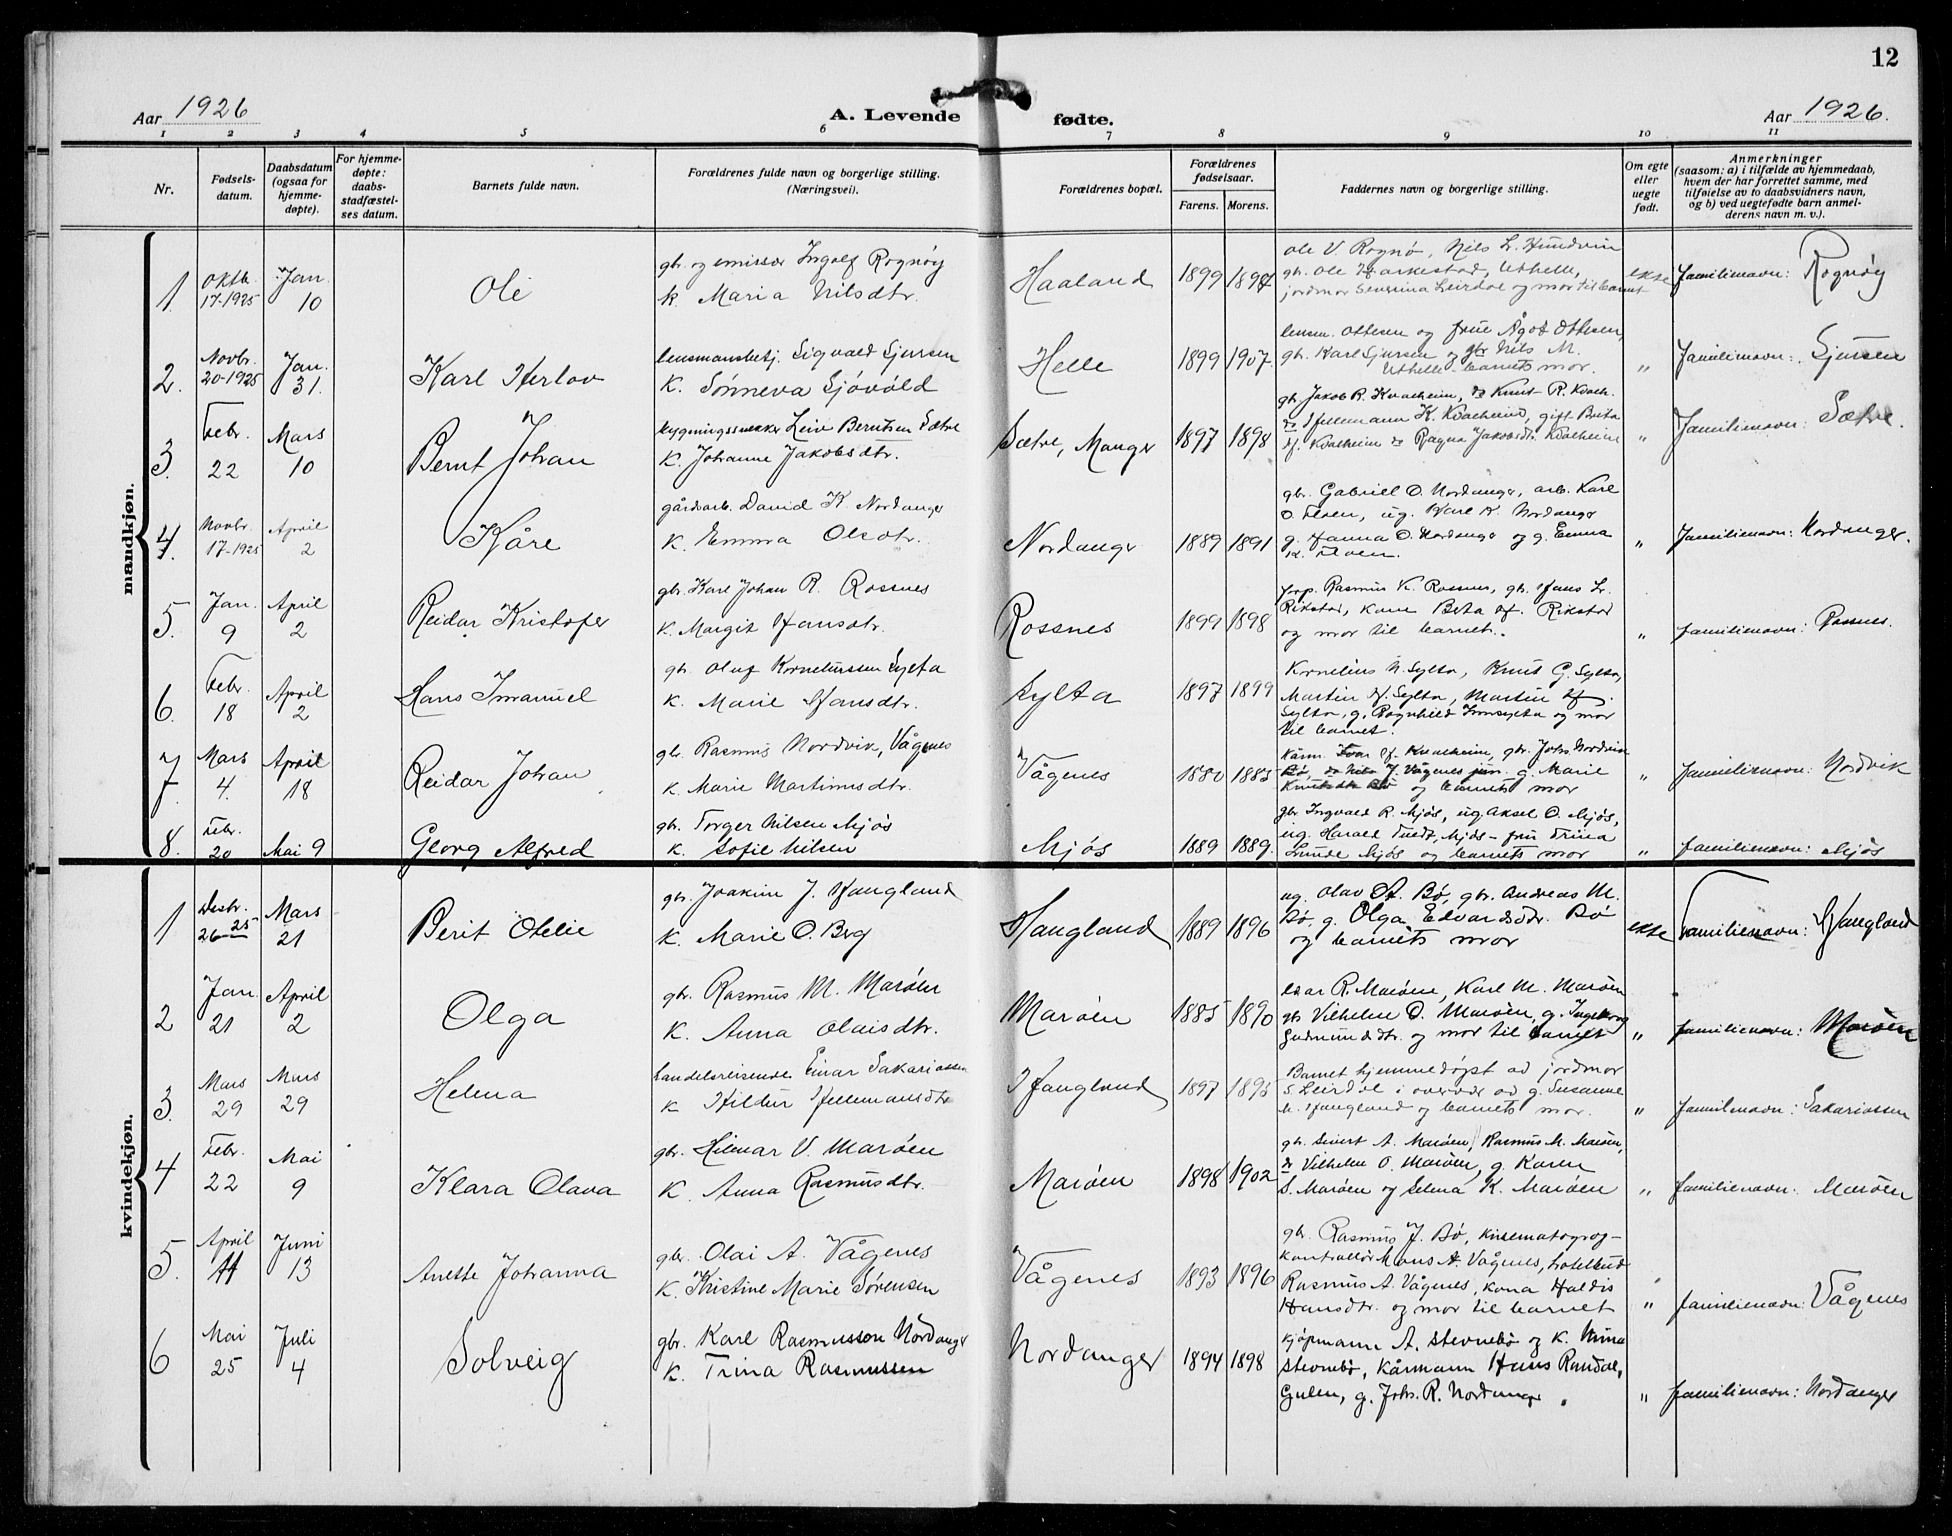 12
Aar 1926
A. Levende fødte.
Aar 1926.
1 2 3 4 5 6 7 8 9 10 11
Nr.
Fødsels-
datum.
Daabsdatum
(ogsaa for
hjemme-
døpte).
For hjemme-
døpte:
daabs-
stadfæstel-
ses datum.
Barnets fulde navn.
Forældrenes fulde navn og borgerlige stilling.
(Næringsvei).
Forældrenes bopæl.
Forældrenes
fødselsaar.
Farens. Morens.
Faddernes navn og borgerlige stilling.
Om egte
eller
uegte
født.
Anmerkninger
(saasom: a) i tilfælde av hjemmedaab,
hvem der har forrettet samme, med
tilføielse av to daabsvidners navn,
og b) ved uegtefødte barn anmel-
derens navn m. v.).
mandkjøn.
1. Oktb. 17-1925 Jan. 10 Ole
gbr. og emissær Ingolf Rognøy
k. Maria Nilsdtr.
Haaland 1899 1894
Ole V. Rognø, Nils L. Hundvin
gbr. Ole Harkestad, Uthelle,
jordmor Severina Leirdal og mor til barnet
ekte familienavn: Rognøy
2. Novbr. 20-1925 Jan. 31. Karl Herlov
lensmansbetj. Sigvald Sjursen
k. Sønneva Sjøvold
Helle 1899 1907.
lensm. Ottesen og frue Ågot Ottesen,
gbr. Karl Sjursen og gbr Nils M.
Uthelle - barnets mor.
" familienavn: Sjursen
3. Febr. 22 Mars 10 Bernt Johan
bygningssnekker Leiv Berntsen Sætre
k. Johanne Jakobsdtr.
Sætre, Manger 1897 1898
gb. Jakob R. Kvalheim, do Knut R. Kvalh.
do Hjelmann K. Kvalheim, gift Brita
H. Kvalheim do Ragna Jakobsdtr. Kvalheim
" familienavn: Sætre.
4. Novbr. 17-1925 April 2 Kåre
gårdsarb. David K. Nordanger
k. Emma Olsdtr.
Nordanger 1889 1891
gbr. Gabriel O. Nordanger, arb. Karl
O. Floen, ug. Karl K. Nordanger
g. Hanna O. Nordanger og g. Emma
Floen.
" familienavn: Nordanger.
5. Jan. 9 April 2 Reidar Kristofer
gbr. Karl Johan R. Rossnes
k. Margit Hansdtr.
Rossnes 1899 1898
forp. Rasmus K. Rossnes, gbr. Hans L.
Rikstad, kone Brita H. Rikstad
og mor til barnet.
" familienavn: Rossnes.
6. Febr. 18 April 2 Hans Imanuel
gbr. Oluf Korneliussen Sylta
k. Marie Hansdtr.
Sylta 1897 1899
Kornelius N. Sylta, Knut G. Sylta,
Martin H. Sylta, Martin H.
Sylta, g. Ragnhild Innsylta og mor
til barnet.
7. Mars 4. April 18 Reidar Johan
gbr. Rasmus Nordvik, Vågenes
k. Marie Martinusdtr.
Vågenes 1880 1885
Kårm. Ivar H. Kvalheim, gbr. Johs. Nordvik
Bø, do Nils J. Vågenes jun. g. Marie
Knutsdtr Bø og barnets mor
" familienavn: Nordvik
8. Febr. 20 Mai 9 Georg Alfred
gbr. Torger Nilsen Mjøs
k. Sofie Nilsen
Mjøs 1889 1889.
gbr Ingvald R. Mjøs, ug. Aksel O. Mjøs,
ug. Harald Tvedt, Mjøs - fru Trina
Lunde Mjøs og barnets mor
" familienavn: Mjøs
kvindekjøn.
1 Desbr. 26-25 Mars 21 Berit Otelie
gbr. Joakim J. Haugland
k. Marie O. Berg
Haugland 1889 1896
ug. Olav A. Bø, gbr. Andreas M.
Bø, g. Olga Edvardsdtr. Bø
og barnets mor
ekte familienavn: Haugland
2 Jan. 21 April 2 Olga
gbr. Rasmus M. Marøen
k. Anna Olaisdtr.
Marøen 1885 1890
Isar R. Marøen, Karl M. Marøen
gbr Vilhelm O. Marøen, g. Ingeborg
Gudmundsdtr. og mor til barnet
" familienavn: Marøen
3. Mars 29 Mars 29 Helena
handelsreisende Einar Sakariassen
k Hildur Hellemansdtr
Haugland 1897 1895
Barnet hjemmedøpt av jordmor
S. Leirdal i overvær av g. Susanne
M. Haugland og barnets mor.
" familienavn: Sakariassen
4 Febr. 22 Mai 9 Klara Olava
gbr. Hilmar V. Marøen
k. Anna Rasmusdtr.
Marøen 1898 1902
gbr. Sivert A. Marøen, Rasmus M. Marøen,
do Vilhelm O. Marøen, g. Karen
S. Marøen og Selma K. Marøen
" familienavn: Marøen
5. April 11 Juni 13 Anette Johanna
gbr. Olai A. Vågenes
k. Kristine Marie Sørensen
Vågenes 1893 1896
gbr. Rasmus J. Bø, kinematograf-
kontrollør Mons A. Vågenes, hotelbud
Rasmus A. Vågenes, kona Haldis
Hansdtr. og mor til barnet
" familienavn: Vågenes
6 Mai 25 Juli 4 Solveig
gbr. Karl Rasmussen Nordanger
k. Trina Rasmussen
Nordanger 1894 1898
kjøpmann A. Stevnebø og k. Nina
Stevnebø, kårmann Hans Randal,
Gulen, g. Johs. R. Nordanger.
" familienavn: Nordanger